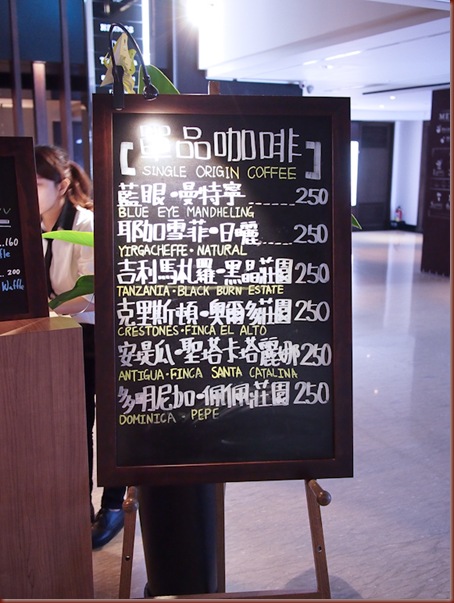 [單品咖啡]
SINGLE ORIGIN COFFEE
藍眼·曼特寧 250
BLUE EYE MANDHELING
耶加雪菲·日曬 250
YIRGACHEFFE · NATURAL
吉利馬札羅·黑晶莊園 250
TANZANIA · BLACK BURN ESTATE
克里斯頓·奧爾多莊園 250
CRESTONES · FINCA EL ALTO
安堤瓜·聖塔卡塔麗娜 250
ANTIGUA · FINCA SANTA CATALINA
多明尼加·佩佩莊園 250
DOMINICA · PEPE
160
200
Waffle